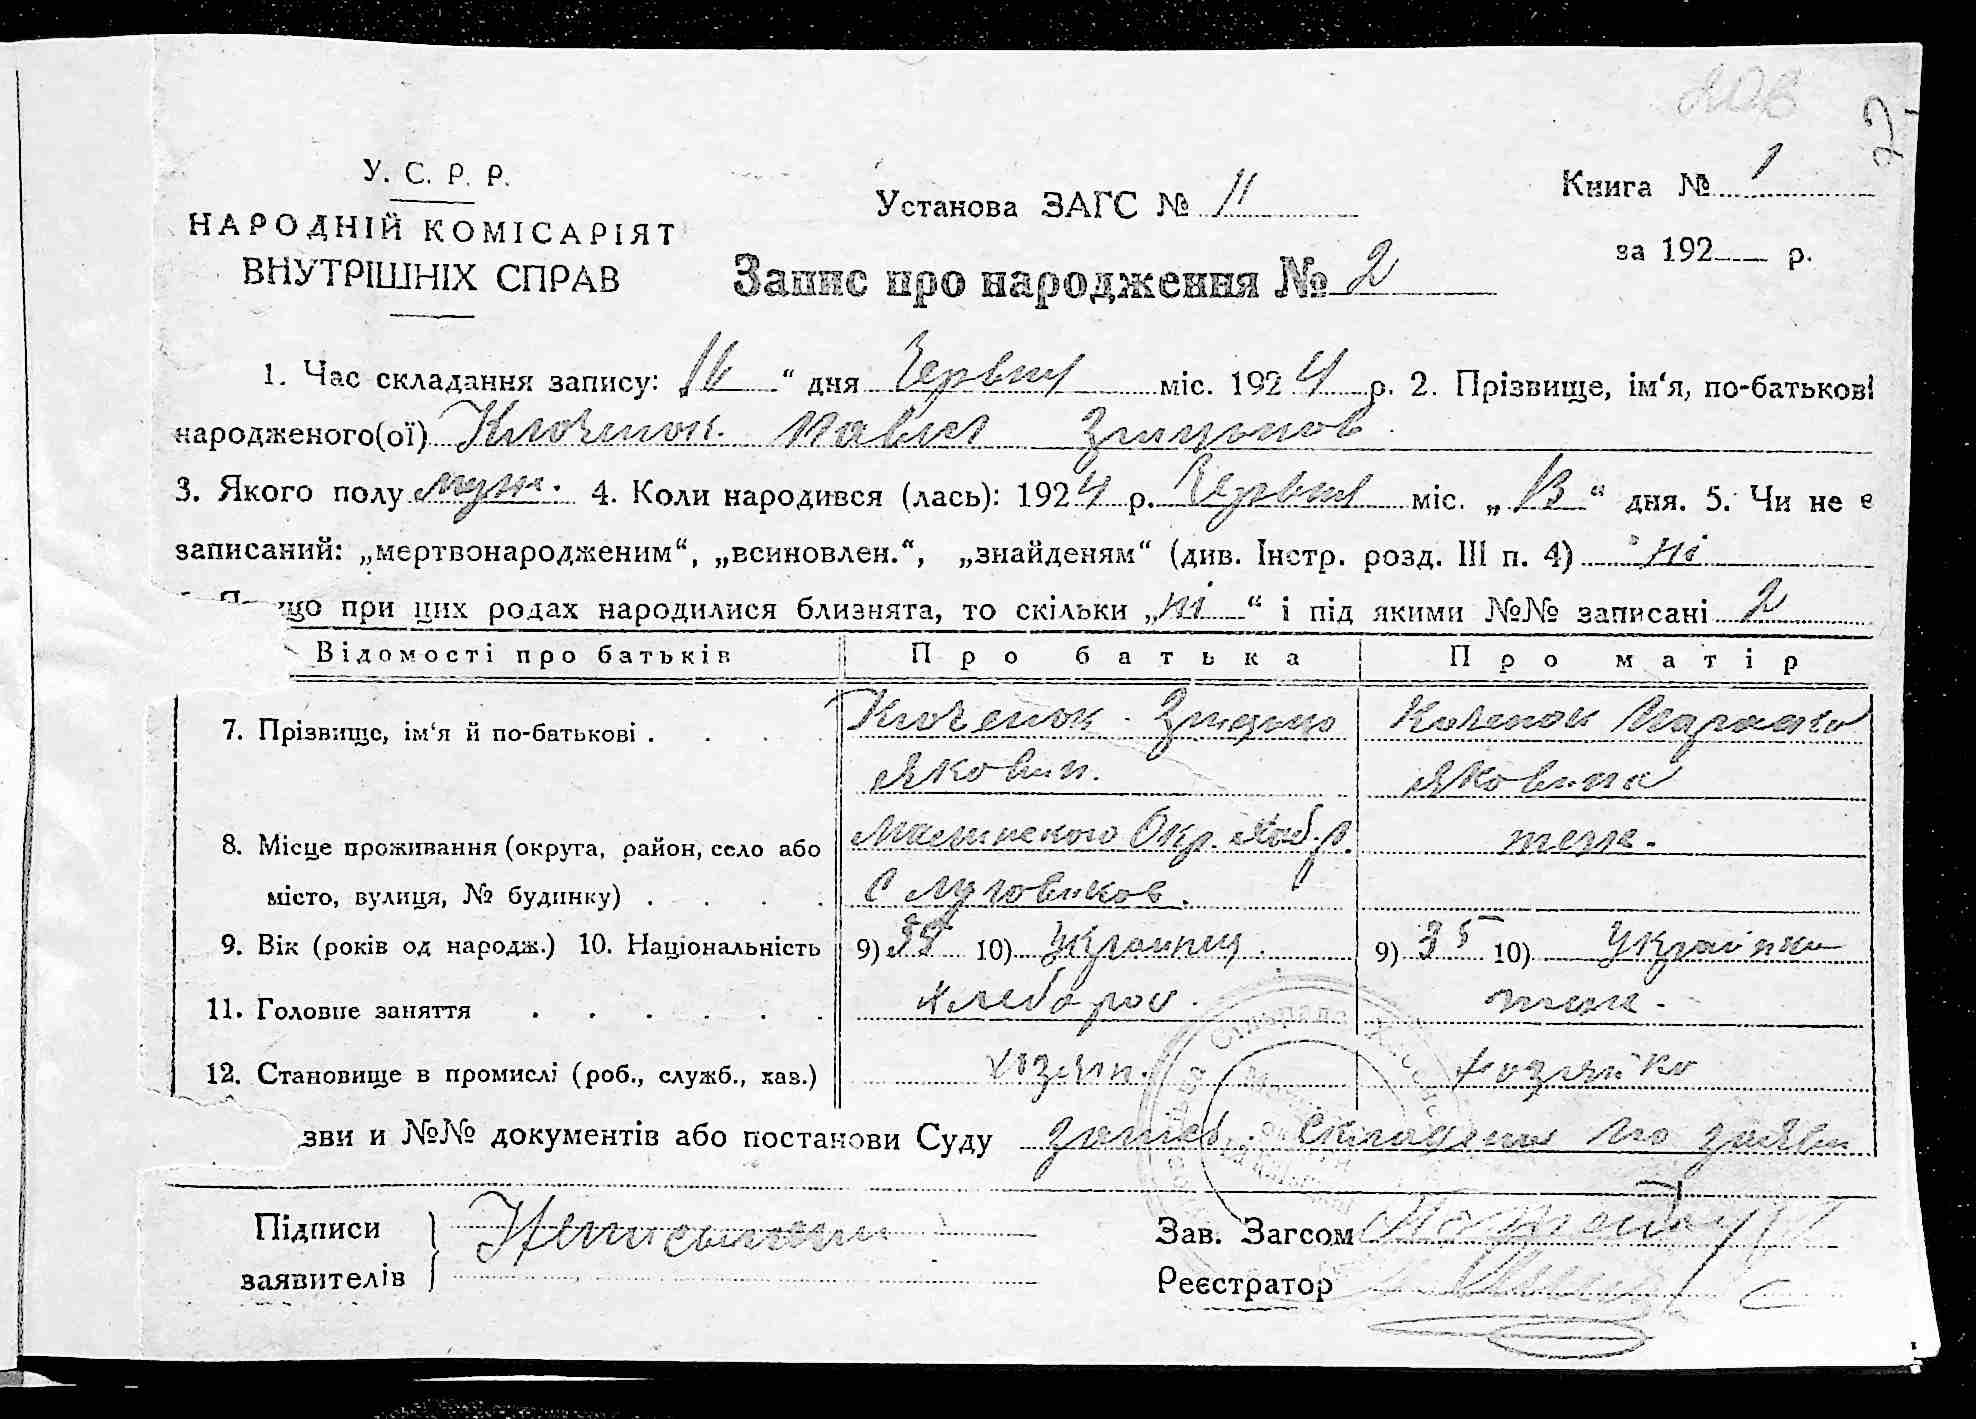 208
2
У. С. Р. Р.
НАРОДНІЙ КОМІСАРІЯТ
ВНУТРІШНІХ СПРАВ
Установа ЗАГС № 11
Книга № 1
за 192 р.
Запис про народження № 2
1. Час складання запису: 16 “ дня Червня міс. 1924 р. 2. Прізвище, ім‘я, по-батькові
народженого(ої) Ключенок Павел
3. Якого полу муж. 4. Коли народився (лась): 1924 р. Червня міс. „ 13 “ дня. 5. Чи не є
записаний: „мертвонародженим“, „всиновлен.“, „знайденям“ (див. Інстр. розд. III п. 4) ні
що при цих родах народилися близнята, то скільки „ ні “ і під якими №№ записані 2
Відомості про батьків Про батька Про матір
7. Прізвище, ім‘я й по-батькові . Ключенок
Яковин. Яковина
8. Місце проживання (округа, район, село або Окр. р. теж.
місто, вулиця, № будинку) . С Луговиков.
9. Вік (років од народж.) 10. Національність 9) 10) Українц. 9) 35 10) Українка
11. Головне заняття хлебороб. теж.
12. Становище в промислі (роб., служб., хаз.) хозяин. хозяйка
зви и №№ документів або постанови Суду запись складена по заяви
Підписи
заявителів
Зав. Загсом
Реєстратор